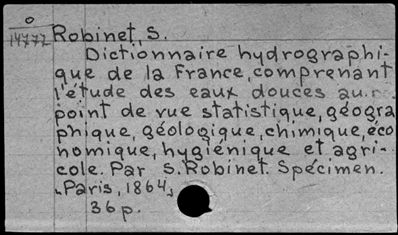 o
14772
Robinet, S.
Dictionnaire hydrographi-
que de la France, comprenant
l'étude des eaux douces au
point de vue statistique, géogra
phique, géologique, chimique, éco
nomique, hygiénique et agri-
cole. Par S. Robinet. Spécimen.
Paris, 1864,
36 p.